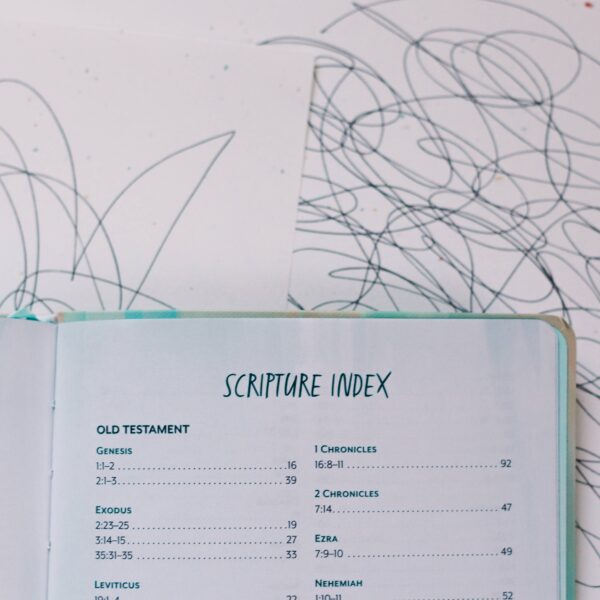 SCRIPTURE INDEX
OLD TESTAMENT
GENESIS
1:1–2 16
2:1–3 39
EXODUS
2:23–25 19
3:14–15 27
35:31–35 33
LEVITICUS
19:1–4 22
1 CHRONICLES
16:8–11 92
2 CHRONICLES
7:14 47
EZRA
7:9–10 49
NEHEMIAH
1:10–11 52